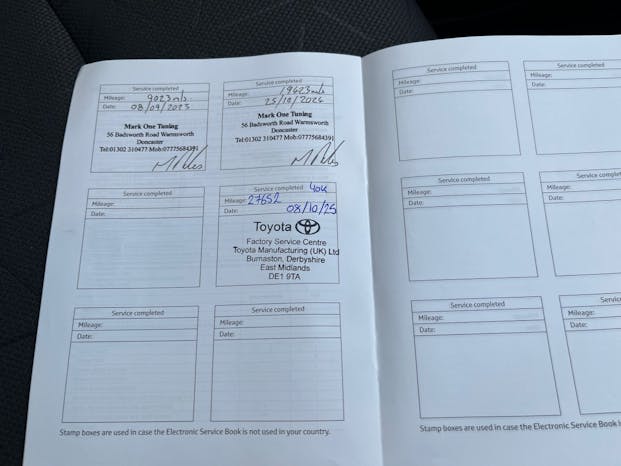 Service completed
Mileage: 9023mls
Date: 08/09/2023
Mark One Tuning
56 Badsworth Road Warmsworth
Doncaster
Tel:01302 310477 Mob:07775684391
Service completed
Mileage: 19623mls
Date: 25/10/2024
Mark One Tuning
56 Badsworth Road Warmsworth
Doncaster
Tel:01302 310477 Mob:07775684391
Service completed
Mileage:
Date:
Service completed 40K
Mileage: 27652
Date: 08/10/25
Toyota
Factory Service Centre
Toyota Manufacturing (UK) Ltd
Burnaston, Derbyshire
East Midlands
DE1 9TA
Service completed
Mileage:
Date:
Service completed
Mileage:
Date:
Stamp boxes are used in case the Electronic Service Book is not used in your country.
Service completed
Mileage:
Date:
Service completed
Mileage:
Date:
Service completed
Mileage:
Date:
Mileage:
Date:
Service completed
Mileage:
Date:
Mileage:
Date:
Stamp boxes are used in case the Electronic Service Book